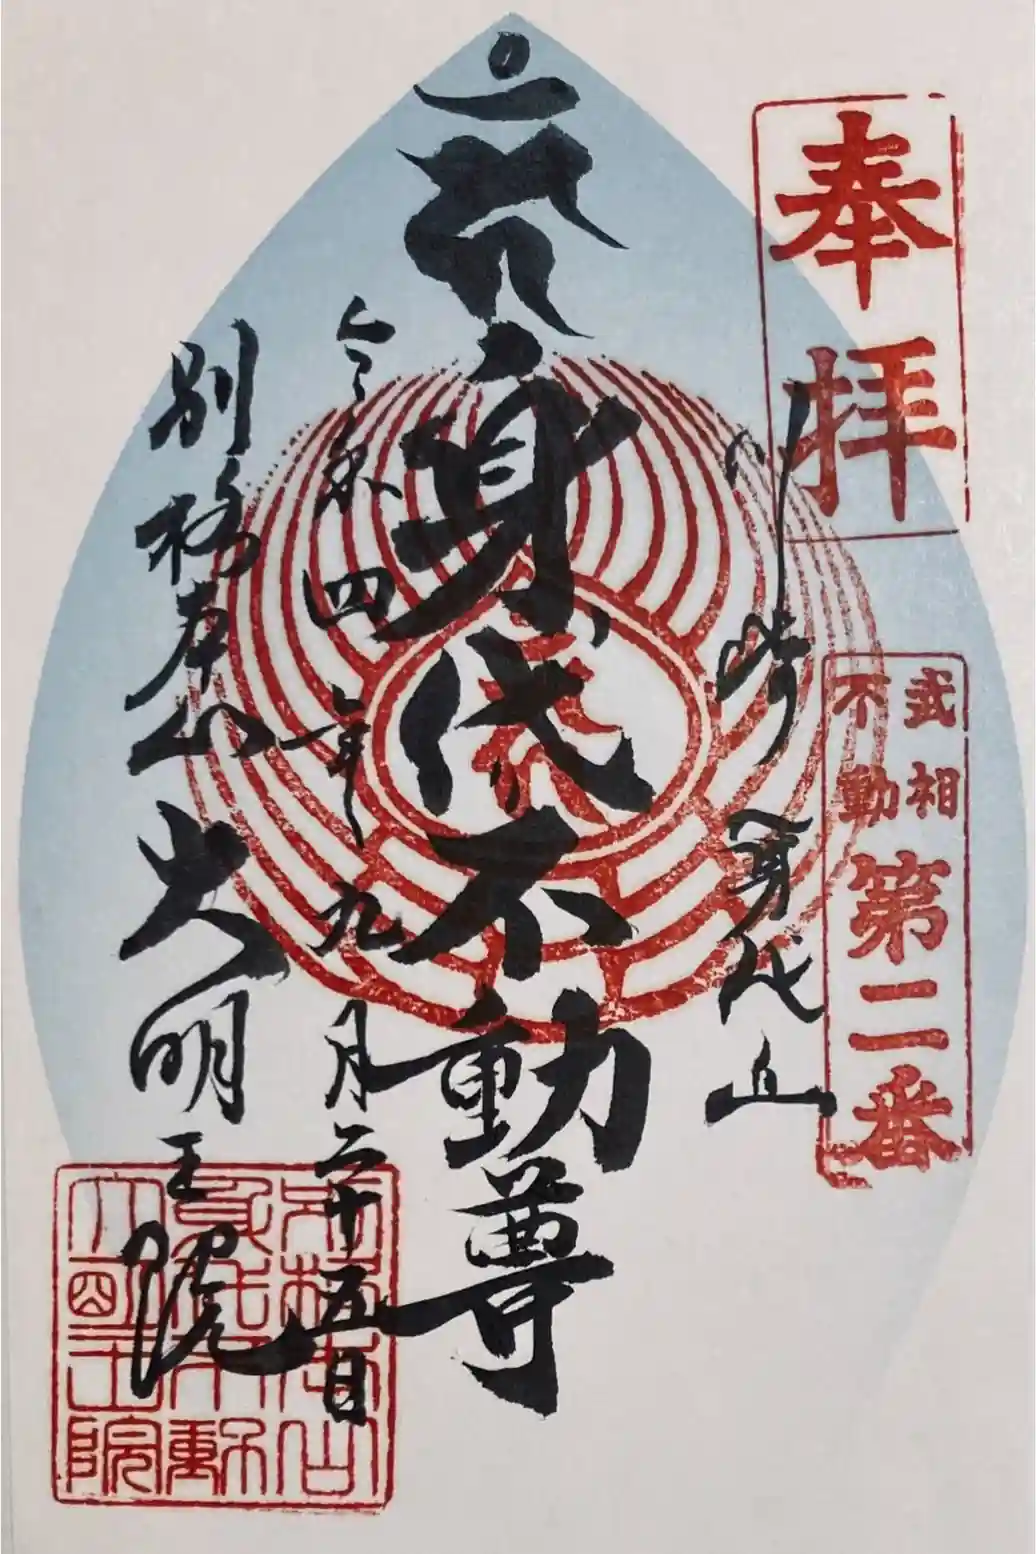 奉拝
武相
不動
第二番
川崎身代山
身代不動尊
令和四年九月二十五日
別格本山
大明王院